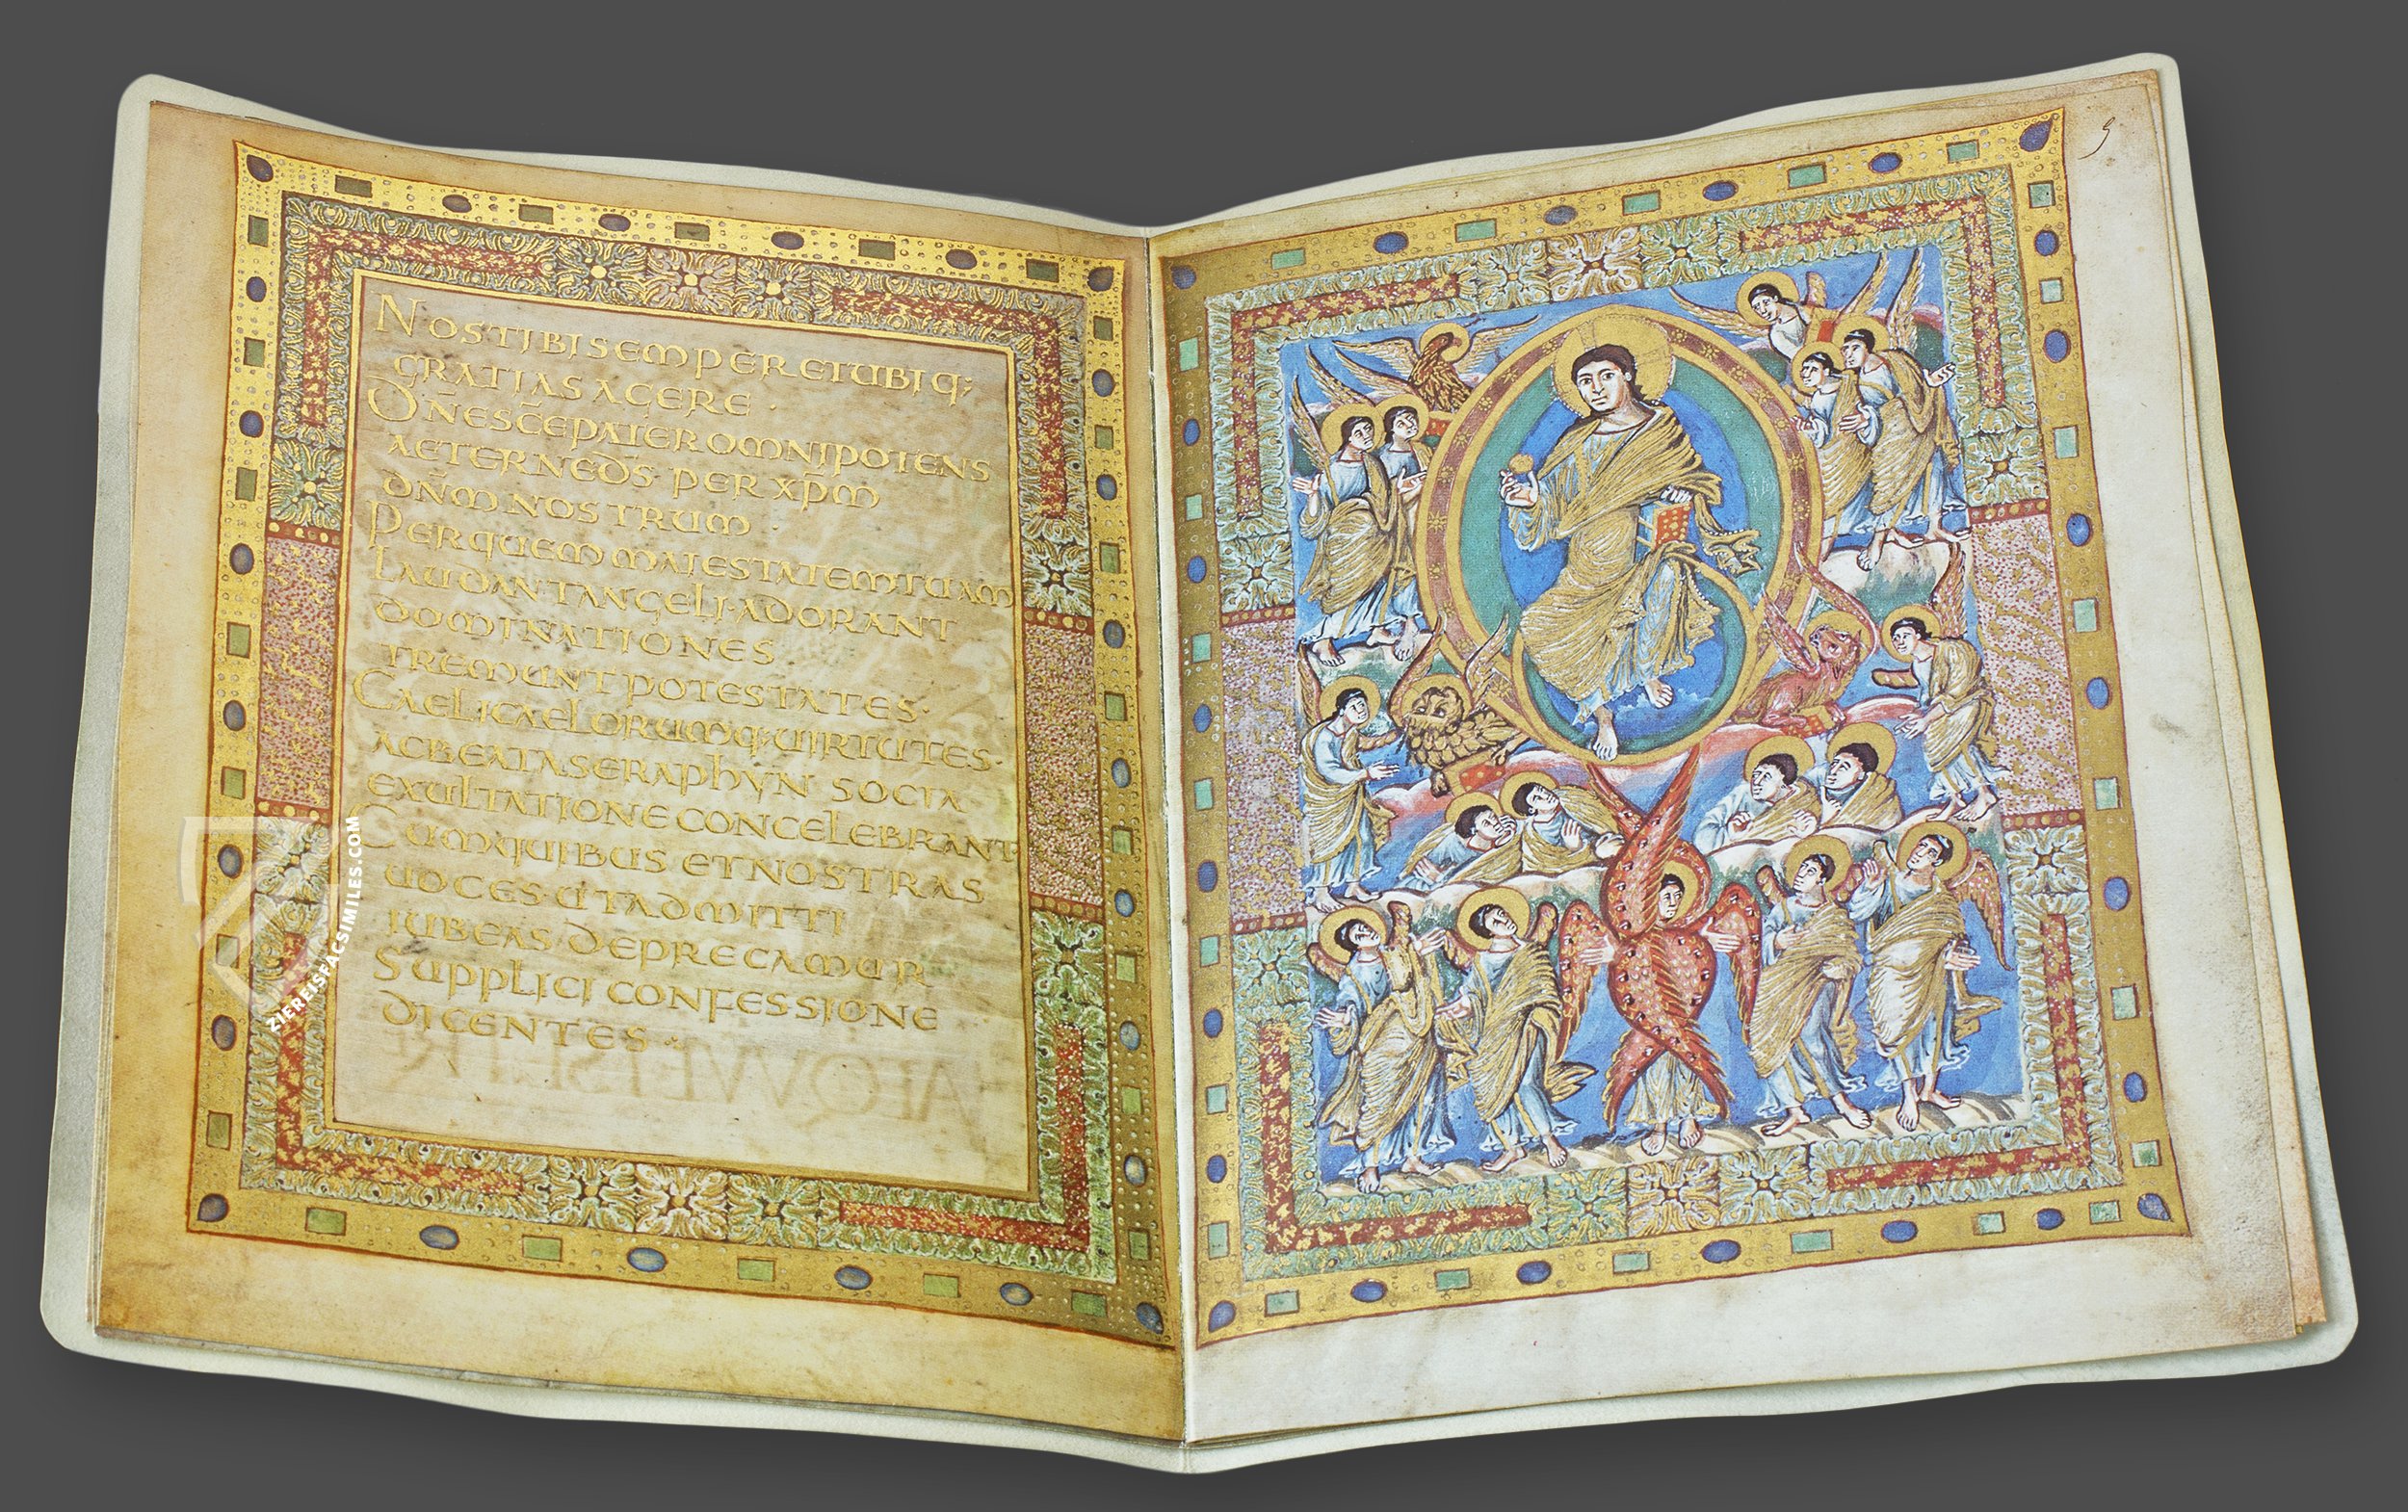 NOS TIBI SEMPER ET UBIQ;
GRATIAS AGERE ·
DN̄E SC̄E PATER OMNIPOTENS
AETERNE D̄S · PER XP̄M
DN̄M NOSTRUM ·
PER QUEM MAIESTATEM TUAM
LAUDANT ANGELI · ADORANT
DOMINATIONES
TREMUNT POTESTATES ·
CAELI CAELORUMQ; UIRTUTES ·
AC BEATA SERAPHYN SOCIA
EXULTATIONE CONCELEBRANT
CUM QUIBUS ET NOSTRAS
UOCES · UT ADMITTI
IUBEAS · DEPRECAMUR
SUPPLICI CONFESSIONE
DICENTES ·
ZIEREISFACSIMILES.COM
5